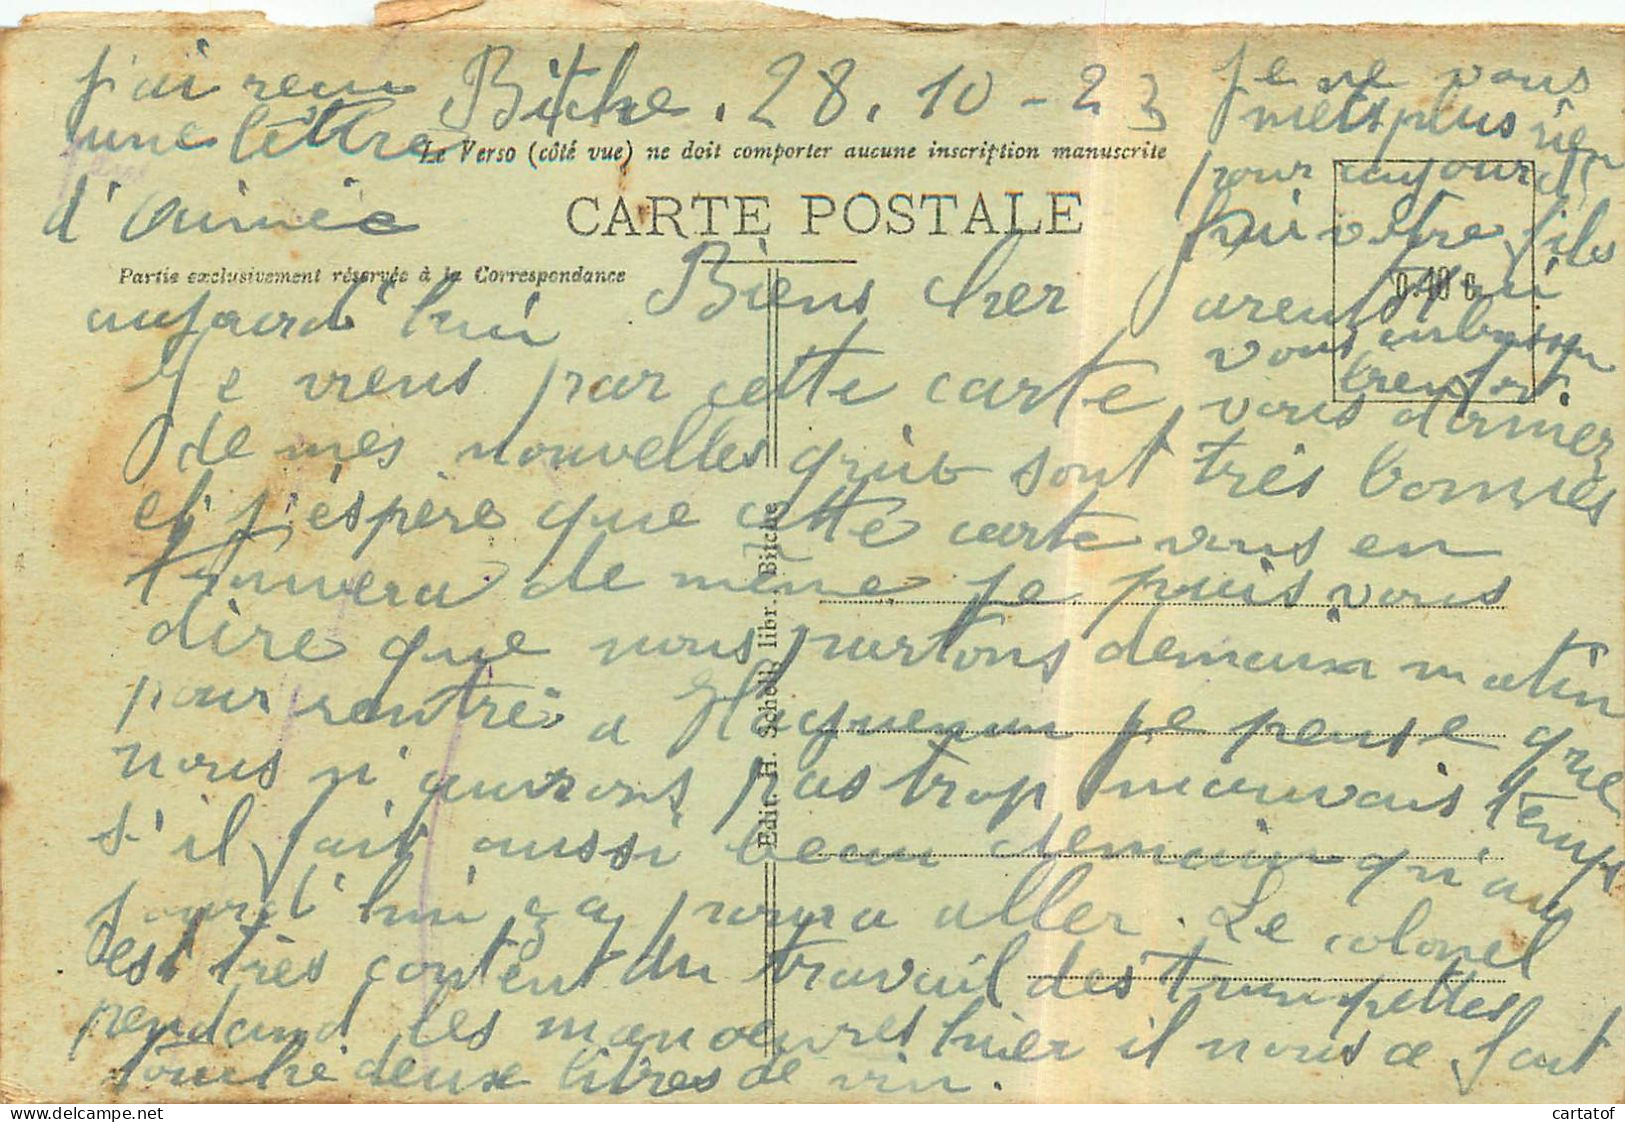 Bitche. 28. 10 - 23
Le Verso (côté vue) ne doit comporter aucune inscription manuscrite
CARTE POSTALE
Partie exclusivement réservée à la Correspondance
0.40 c
Edit. H. Schell, libr., Bitche
Biens cher Parents
Je viens par cette carte vous donner
de mes nouvelles qui sont très bonnes
et j'éspère que cette carte vous en
trouvera de même je puis vous
dire que nous partons demain matin
pour rentré a Haguenau je pense que
nous n'aurons pas trop mauvais temps
s'il fait aussi beau demain qu'au
jourd'hui ça poura aller. Le colonel
est très content du travail des trompettes
pendand les manoeuvres hier il nous a fait
touché deux litres de vin.
j'ai reçu
une lettre
d'Aimée
aujourd'hui
Je ne vous
mets plus rien
pour aujourd
hui votre fils
qui
vous embrasse
bien fort.
cartatof